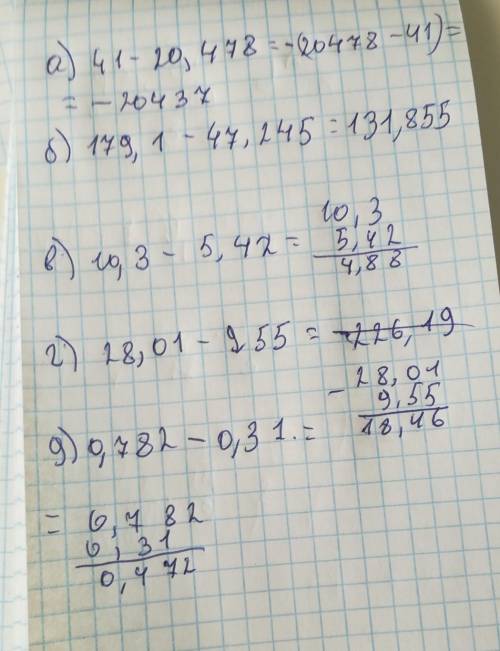 а) 41 - 20,478 = -(20478 - 41) =
= - 20437
б) 179,1 - 47,245 = 131,855
в) 10,3 - 5,42 =
10,3
5,42
4,88
г) 28,01 - 955 = -226,19
- 28,01
9,55
18,46
д) 0,782 - 0,31. =
= 0,782
0,31
0,472